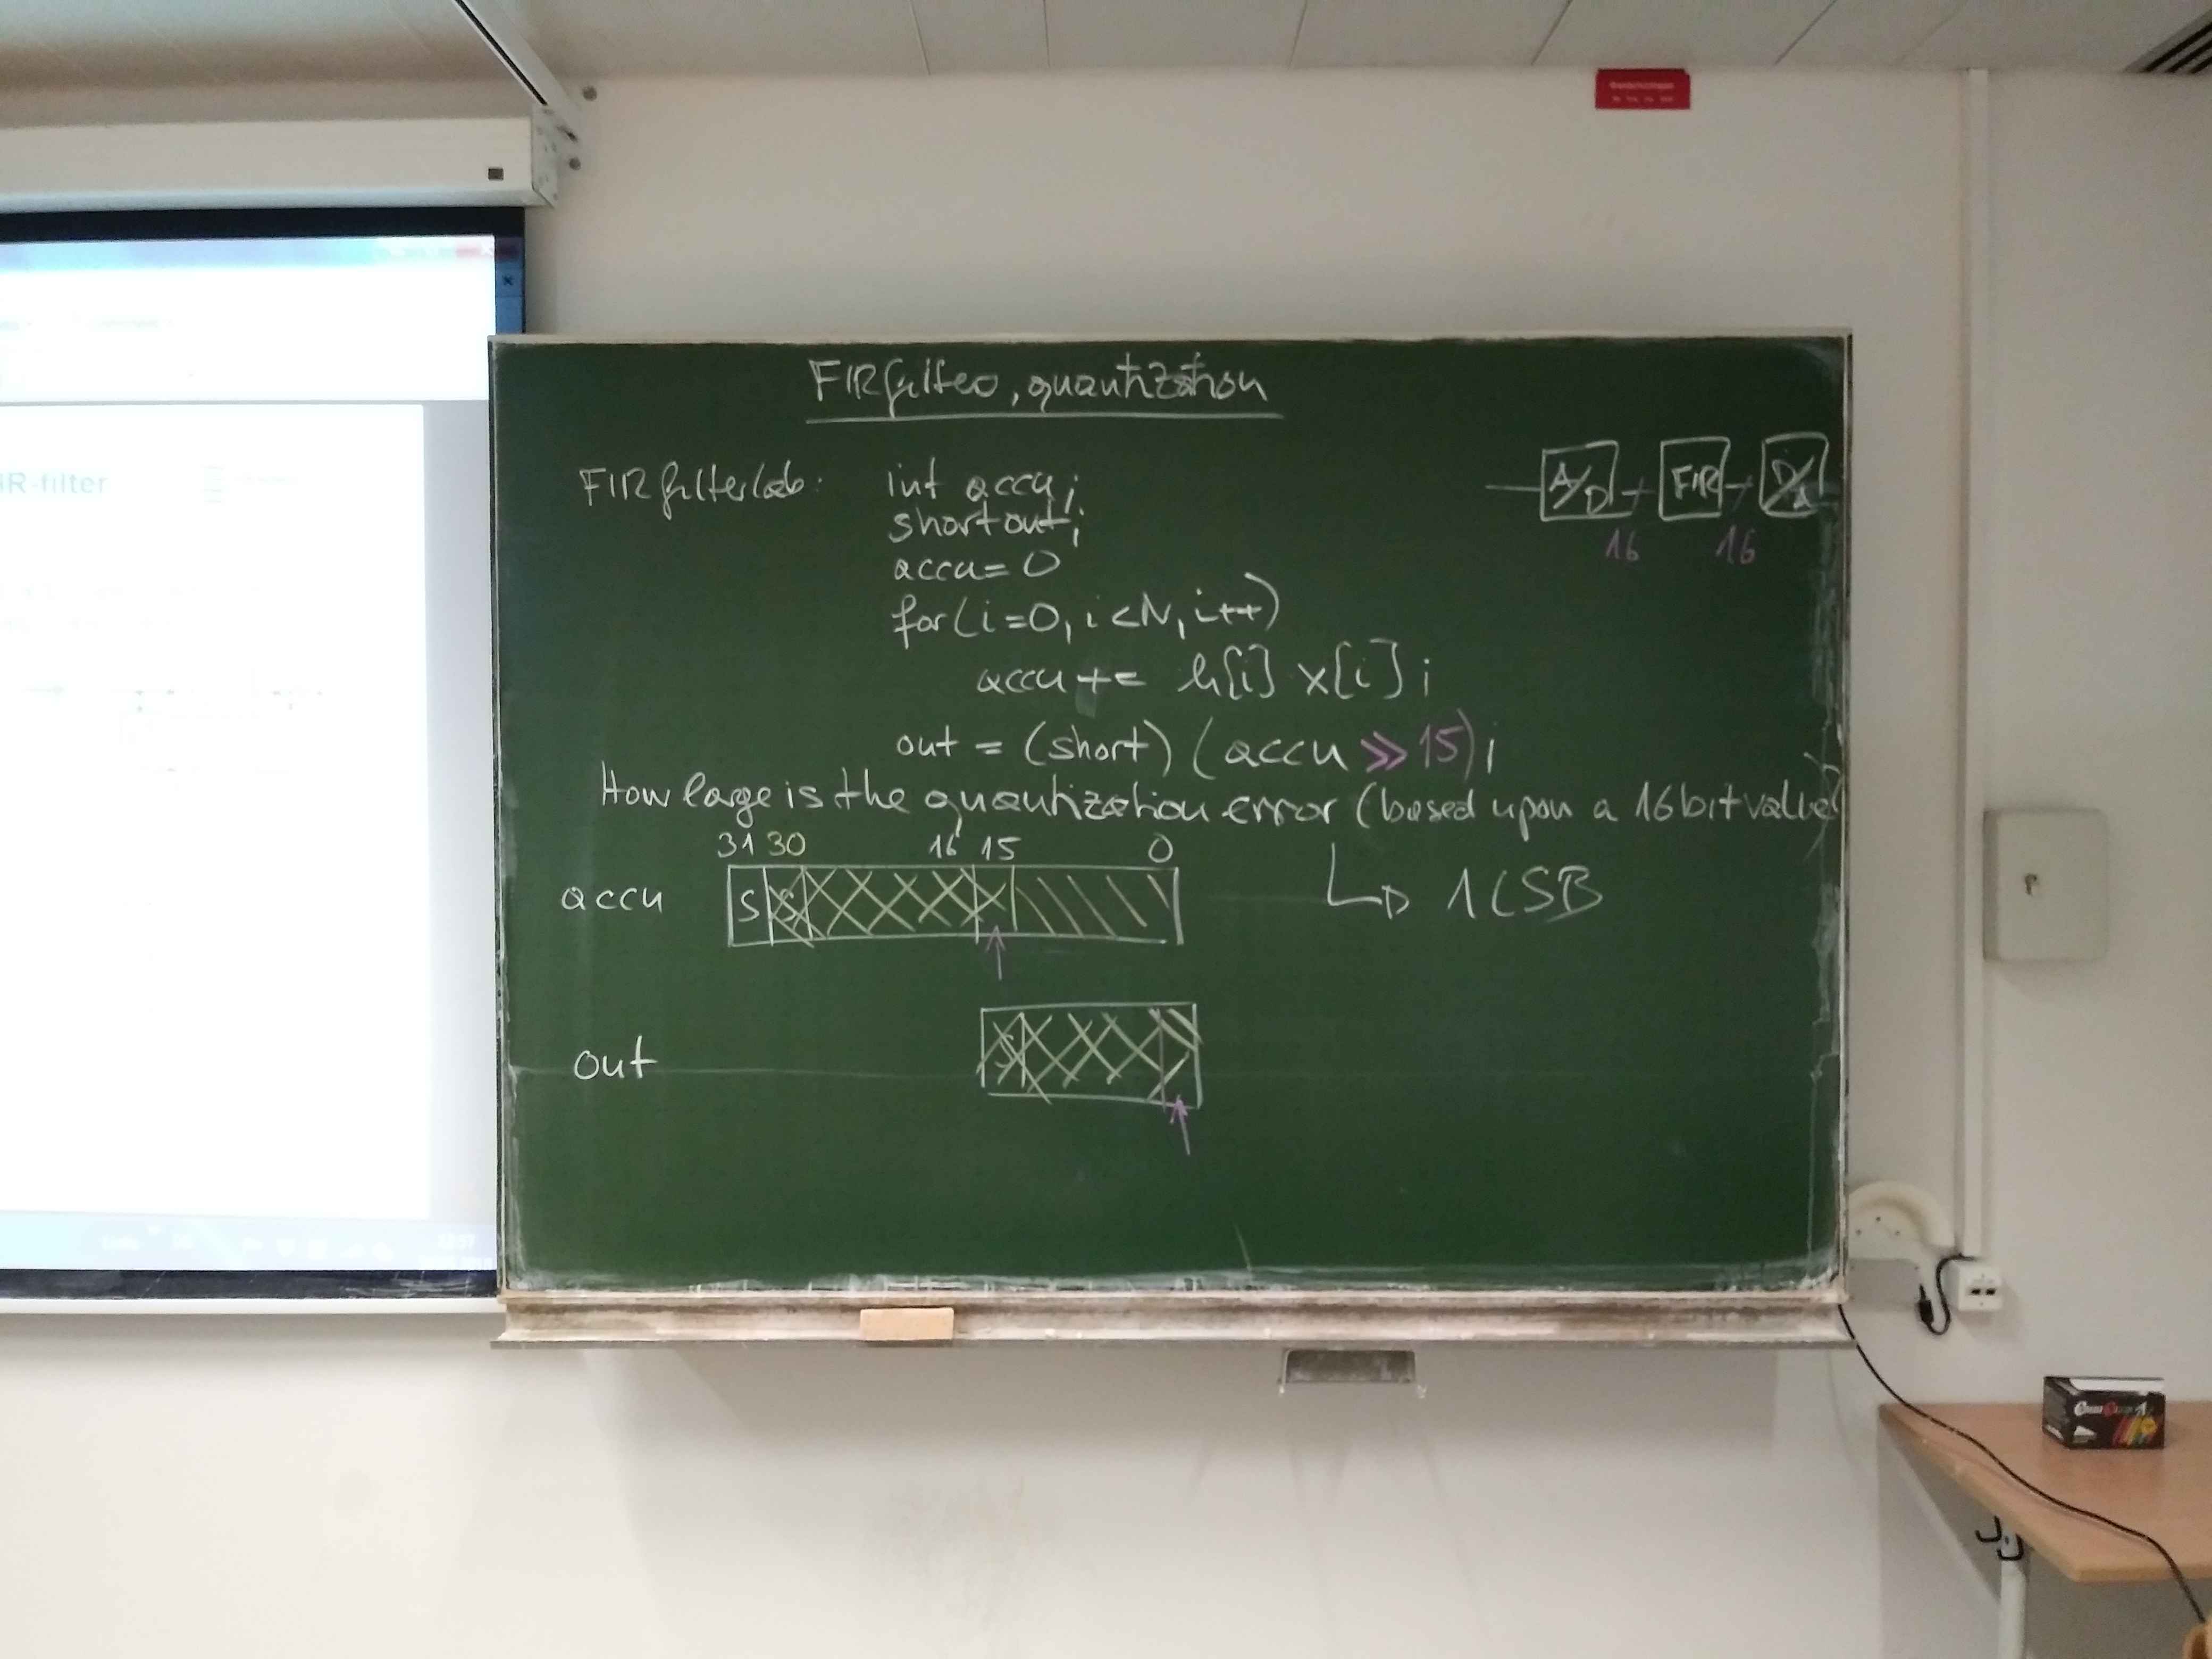 FIR filter, quantization
FIR filter lab:
int accu;
short out;
accu = 0
for (i=0, i<N, i++)
accu += h[i] x[i];
out = (short) (accu >> 15);
A/D FIR D/A
16 16
How large is the quantization error (based upon a 16 bit value)
31 30 16 15 0
accu S S
1 LSB
out S
IR-filter